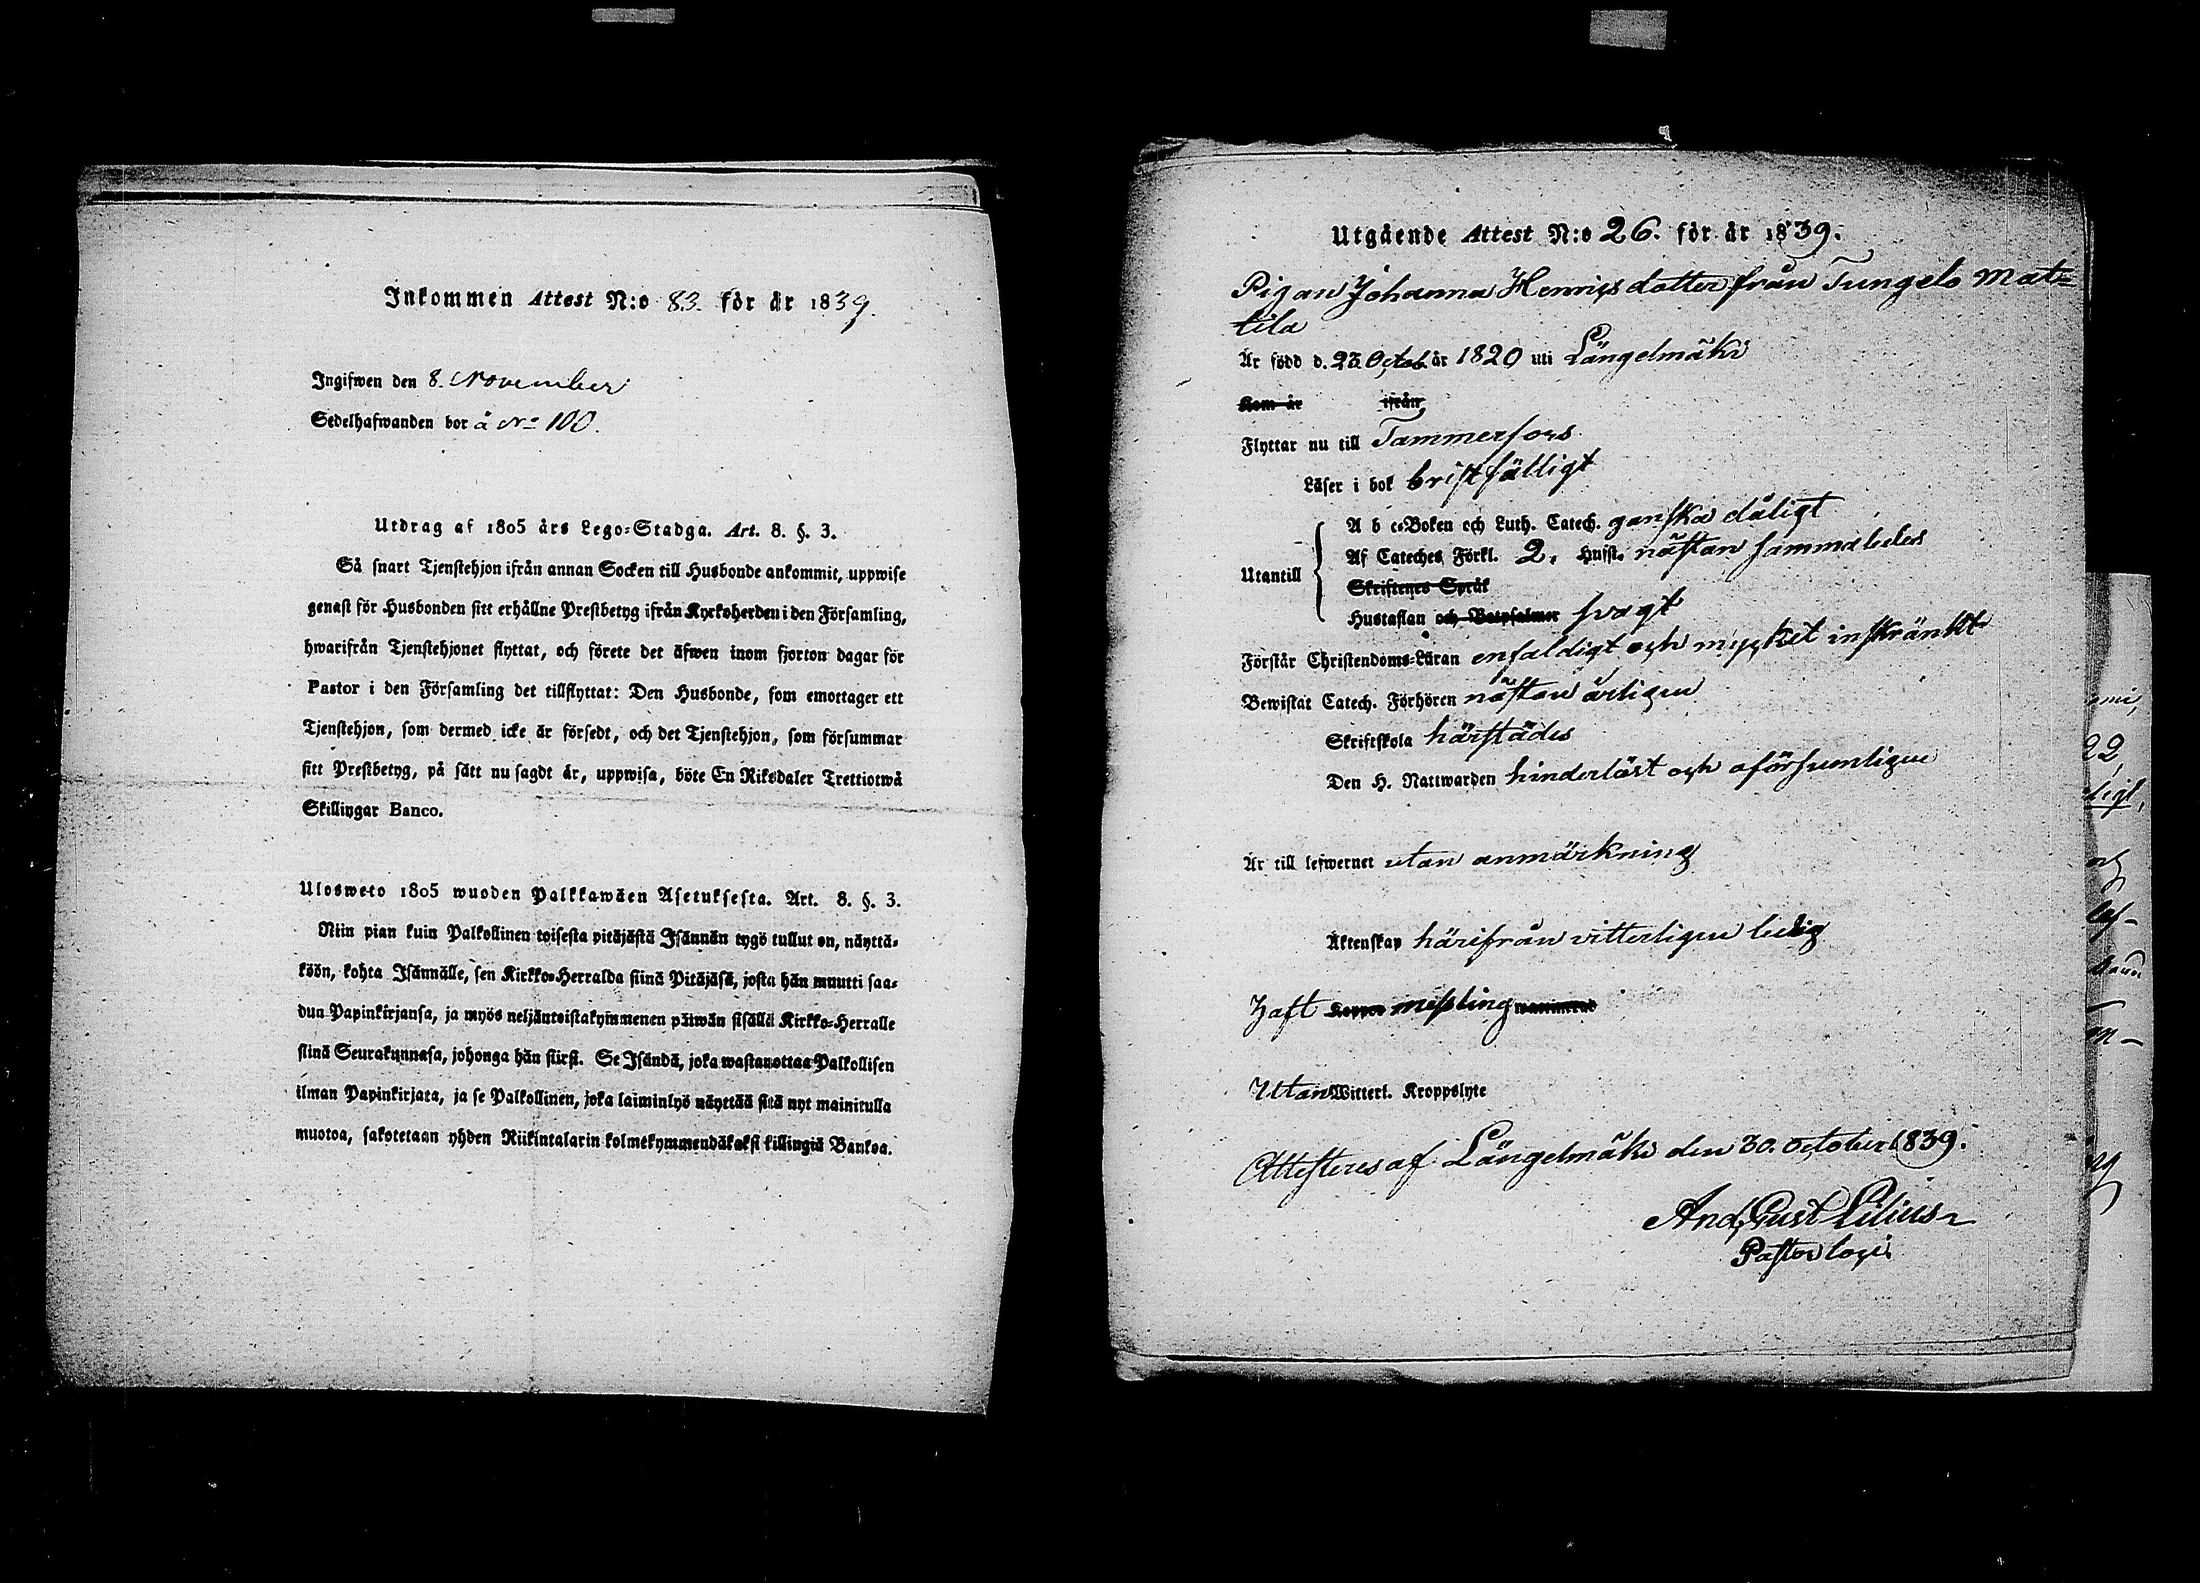 Inkommen Attest N:o 83. för år 1839.
Ingifwen den 8. November
Sedelhafwanden bor å No 100.
Utdrag af 1805 års Lego-Stadga. Art. 8. §. 3.
Så snart Tjenstehjon ifrån annan Socken till Husbonde ankommit, uppwise
genast för Husbonden sitt erhållne Prestbetyg ifrån Kyrkoherden i den Församling,
hwarifrån Tjenstehjonet flyttat, och förete det äfwen inom fjorton dagar för
Pastor i den Församling det tillflyttat: Den Husbonde, som emottager ett
Tjenstehjon, som dermed icke är försedt, och det Tjenstehjon, som försummar
sitt Prestbetyg, på sätt nu sagdt är, uppwisa, böte En Riksdaler Trettiotwå
Skillingar Banco.
Ulosweto 1805 wuoden Palkkawäen Asetuksesta. Art. 8. §. 3.
Niin pian kuin Palkollinen toisesta pitäjästä Isännän tygö tullut on, näyttä-
köön, kohta Isännälle, sen Kirkko-Herralda siinä Pitäjäsä, josta hän muutti saa-
dun Papinkirjansa, ja myös neljäntoistakymmenen päiwän sisällä Kirkko-Herralle
siinä Seurakunnasa, johonga hän siirsi. Se Isändä, joka wastanottaa Palkollisen
ilman Papinkirjata, ja se Palkollinen, joka laiminlyö näyttää sitä nyt mainitulla
muotoa, sakotetaan yhden Riikintalarin kolmekymmendäkaksi killingiä Bankoa.
Utgående Attest N:o 26. för år 1839.
Pigan Johanna Henricsdotter från Tungelo Mat-
tila
Är född d. 23 Octob. år 1820 uti Längelmäki
Kom år ifrån
Flyttar nu till Tammerfors
Läser i bok bristfälligt
A b c-Boken och Luth. Catech. ganska dåligt
Af Cateches Förkl. 2. Hufst. nästan sammaledes
Utantill
Skriftenes Språk
Hustaflan och Botpsalmer svagt
Förstår Christendoms-Läran enfaldigt och mycket inskränkt
Bewistat Catech. Förhören nästan årligen
Skriftskola härstädes
Den H. Nattwarden hinderlöst och oförsumligen
Är till lefwernet utan anmärkning
Äktenskap härifrån vitterligen ledig
Haft Koppor meßling waccinerad
Utan Witterl. Kroppslyte
Attesteres af Längelmäki den 30. October 1839.
And. Gust Lilius
Pastor loci